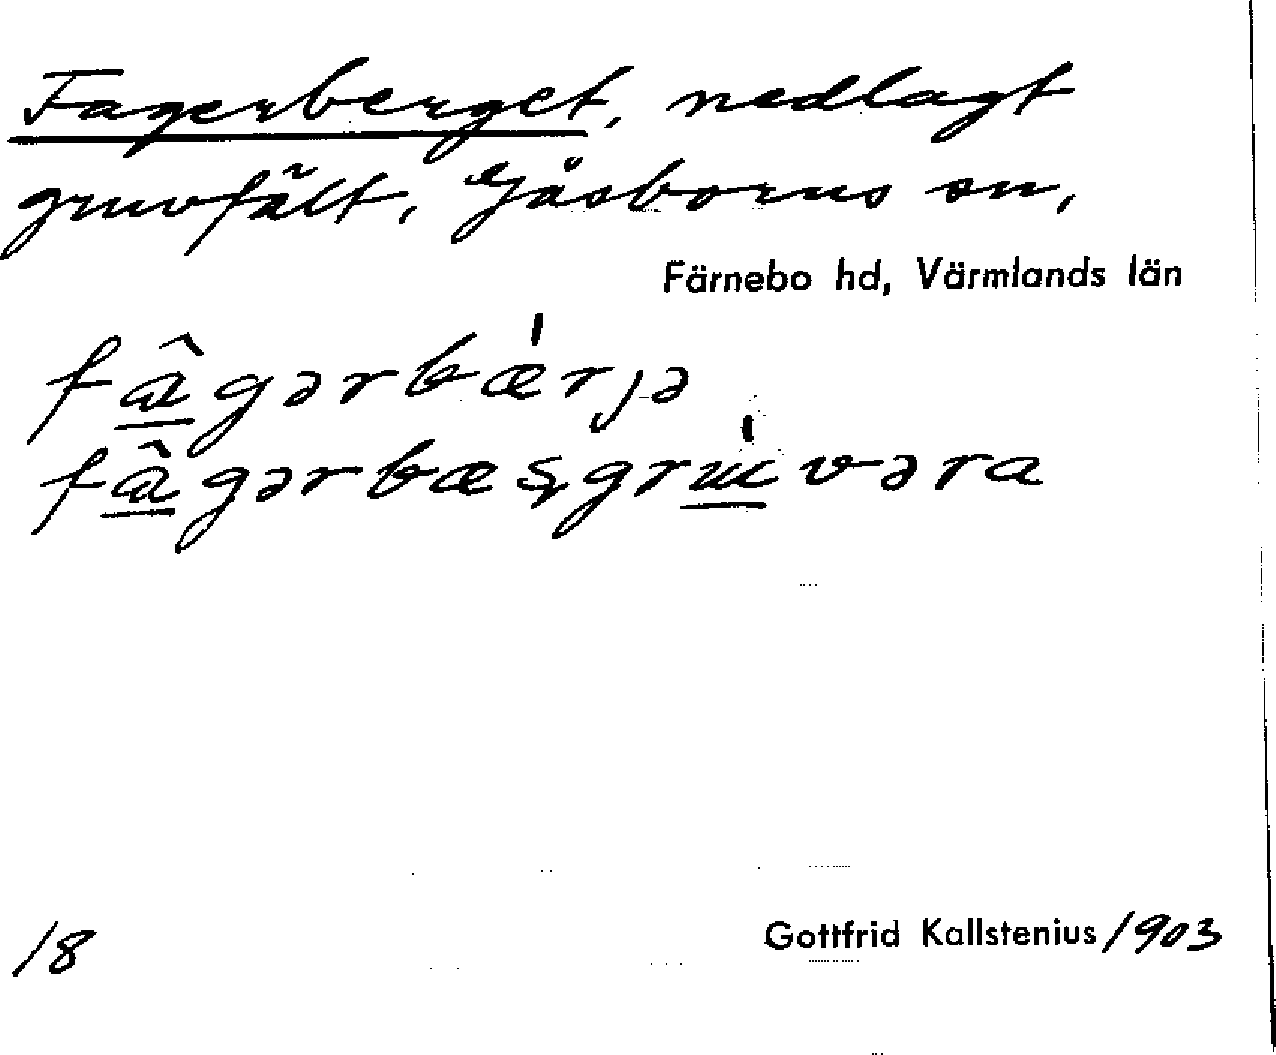 Fagerberget, nedlagt
gruvfält, Gåsborns sn,
Färnebo hd, Värmlands län
fâ̲gərbæ̍rjə
fâ̲gərbæʂgru̲̍vəra
18 Gottfrid Kallstenius/903